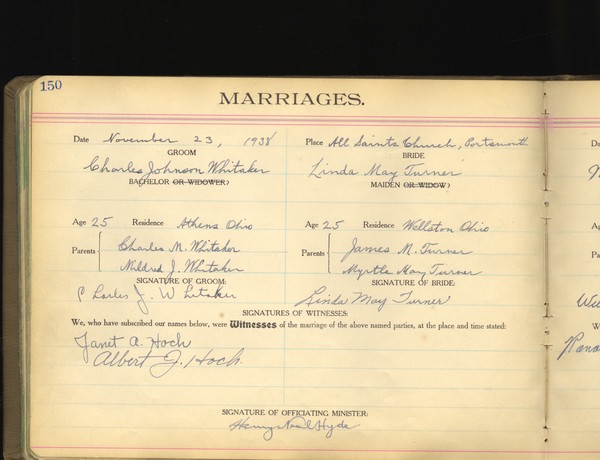 150
MARRIAGES.
Date November 23, 1938 Place All Saints Church, Portsmouth
GROOM BRIDE
Charles Johnson Whitaker Linda May Turner
BACHELOR OR WIDOWER) MAIDEN OR WIDOW)
Age 25 Residence Athens Ohio Age 25 Residence Wellston Ohio
Parents { Charles M. Whitaker Parents { James M. Turner
Mildred J. Whitaker Myrtle May Turner
SIGNATURE OF GROOM: SIGNATURE OF BRIDE:
Charles J. Whitaker Linda May Turner
SIGNATURES OF WITNESSES:
We, who have subscribed our names below, were Witnesses of the marriage of the above named parties, at the place and time stated:
Janet A. Hoch
Albert J. Hoch.
SIGNATURE OF OFFICIATING MINISTER:
Hyde
Da
Ag
Parents
W